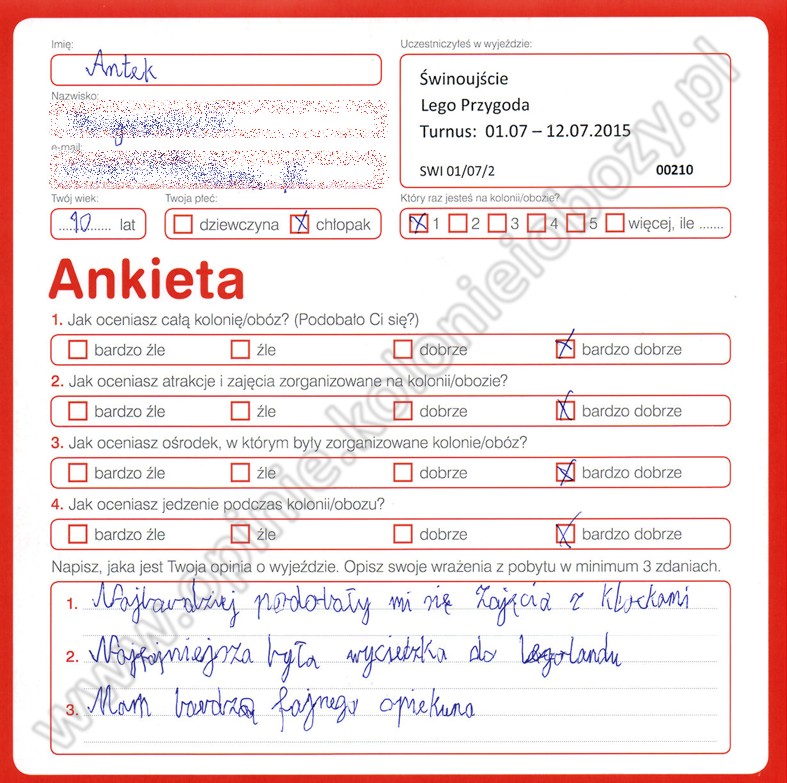 Imię:
Uczestniczyłeś w wyjeździe:
Antek
Świnoujście
Lego Przygoda
Turnus: 01.07 – 12.07.2015
SWI 01/07/2 00210
Nazwisko:
e-mail:
Twój wiek: Twoja płeć: Który raz jesteś na kolonii/obozie?
....10...... lat dziewczyna chłopak 1 2 3 4 5 więcej, ile .......
Ankieta
1. Jak oceniasz całą kolonię/obóz? (Podobało Ci się?)
bardzo źle źle dobrze bardzo dobrze
2. Jak oceniasz atrakcje i zajęcia zorganizowane na kolonii/obozie?
bardzo źle źle dobrze bardzo dobrze
3. Jak oceniasz ośrodek, w którym były zorganizowane kolonie/obóz?
bardzo źle źle dobrze bardzo dobrze
4. Jak oceniasz jedzenie podczas kolonii/obozu?
bardzo źle źle dobrze bardzo dobrze
Napisz, jaka jest Twoja opinia o wyjeździe. Opisz swoje wrażenia z pobytu w minimum 3 zdaniach.
1. Najbardziej podobały mi się zajęcia z klockami
2. Najfajniejsza była wycieczka do legolandu
3. Mam bardzo fajnego opiekuna
www.opinie.kolonieiobozy.pl